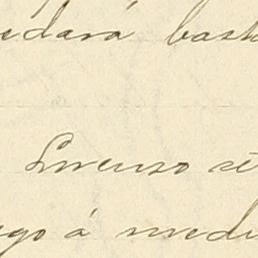 edará bast
Lorenzo sé
ego á medi